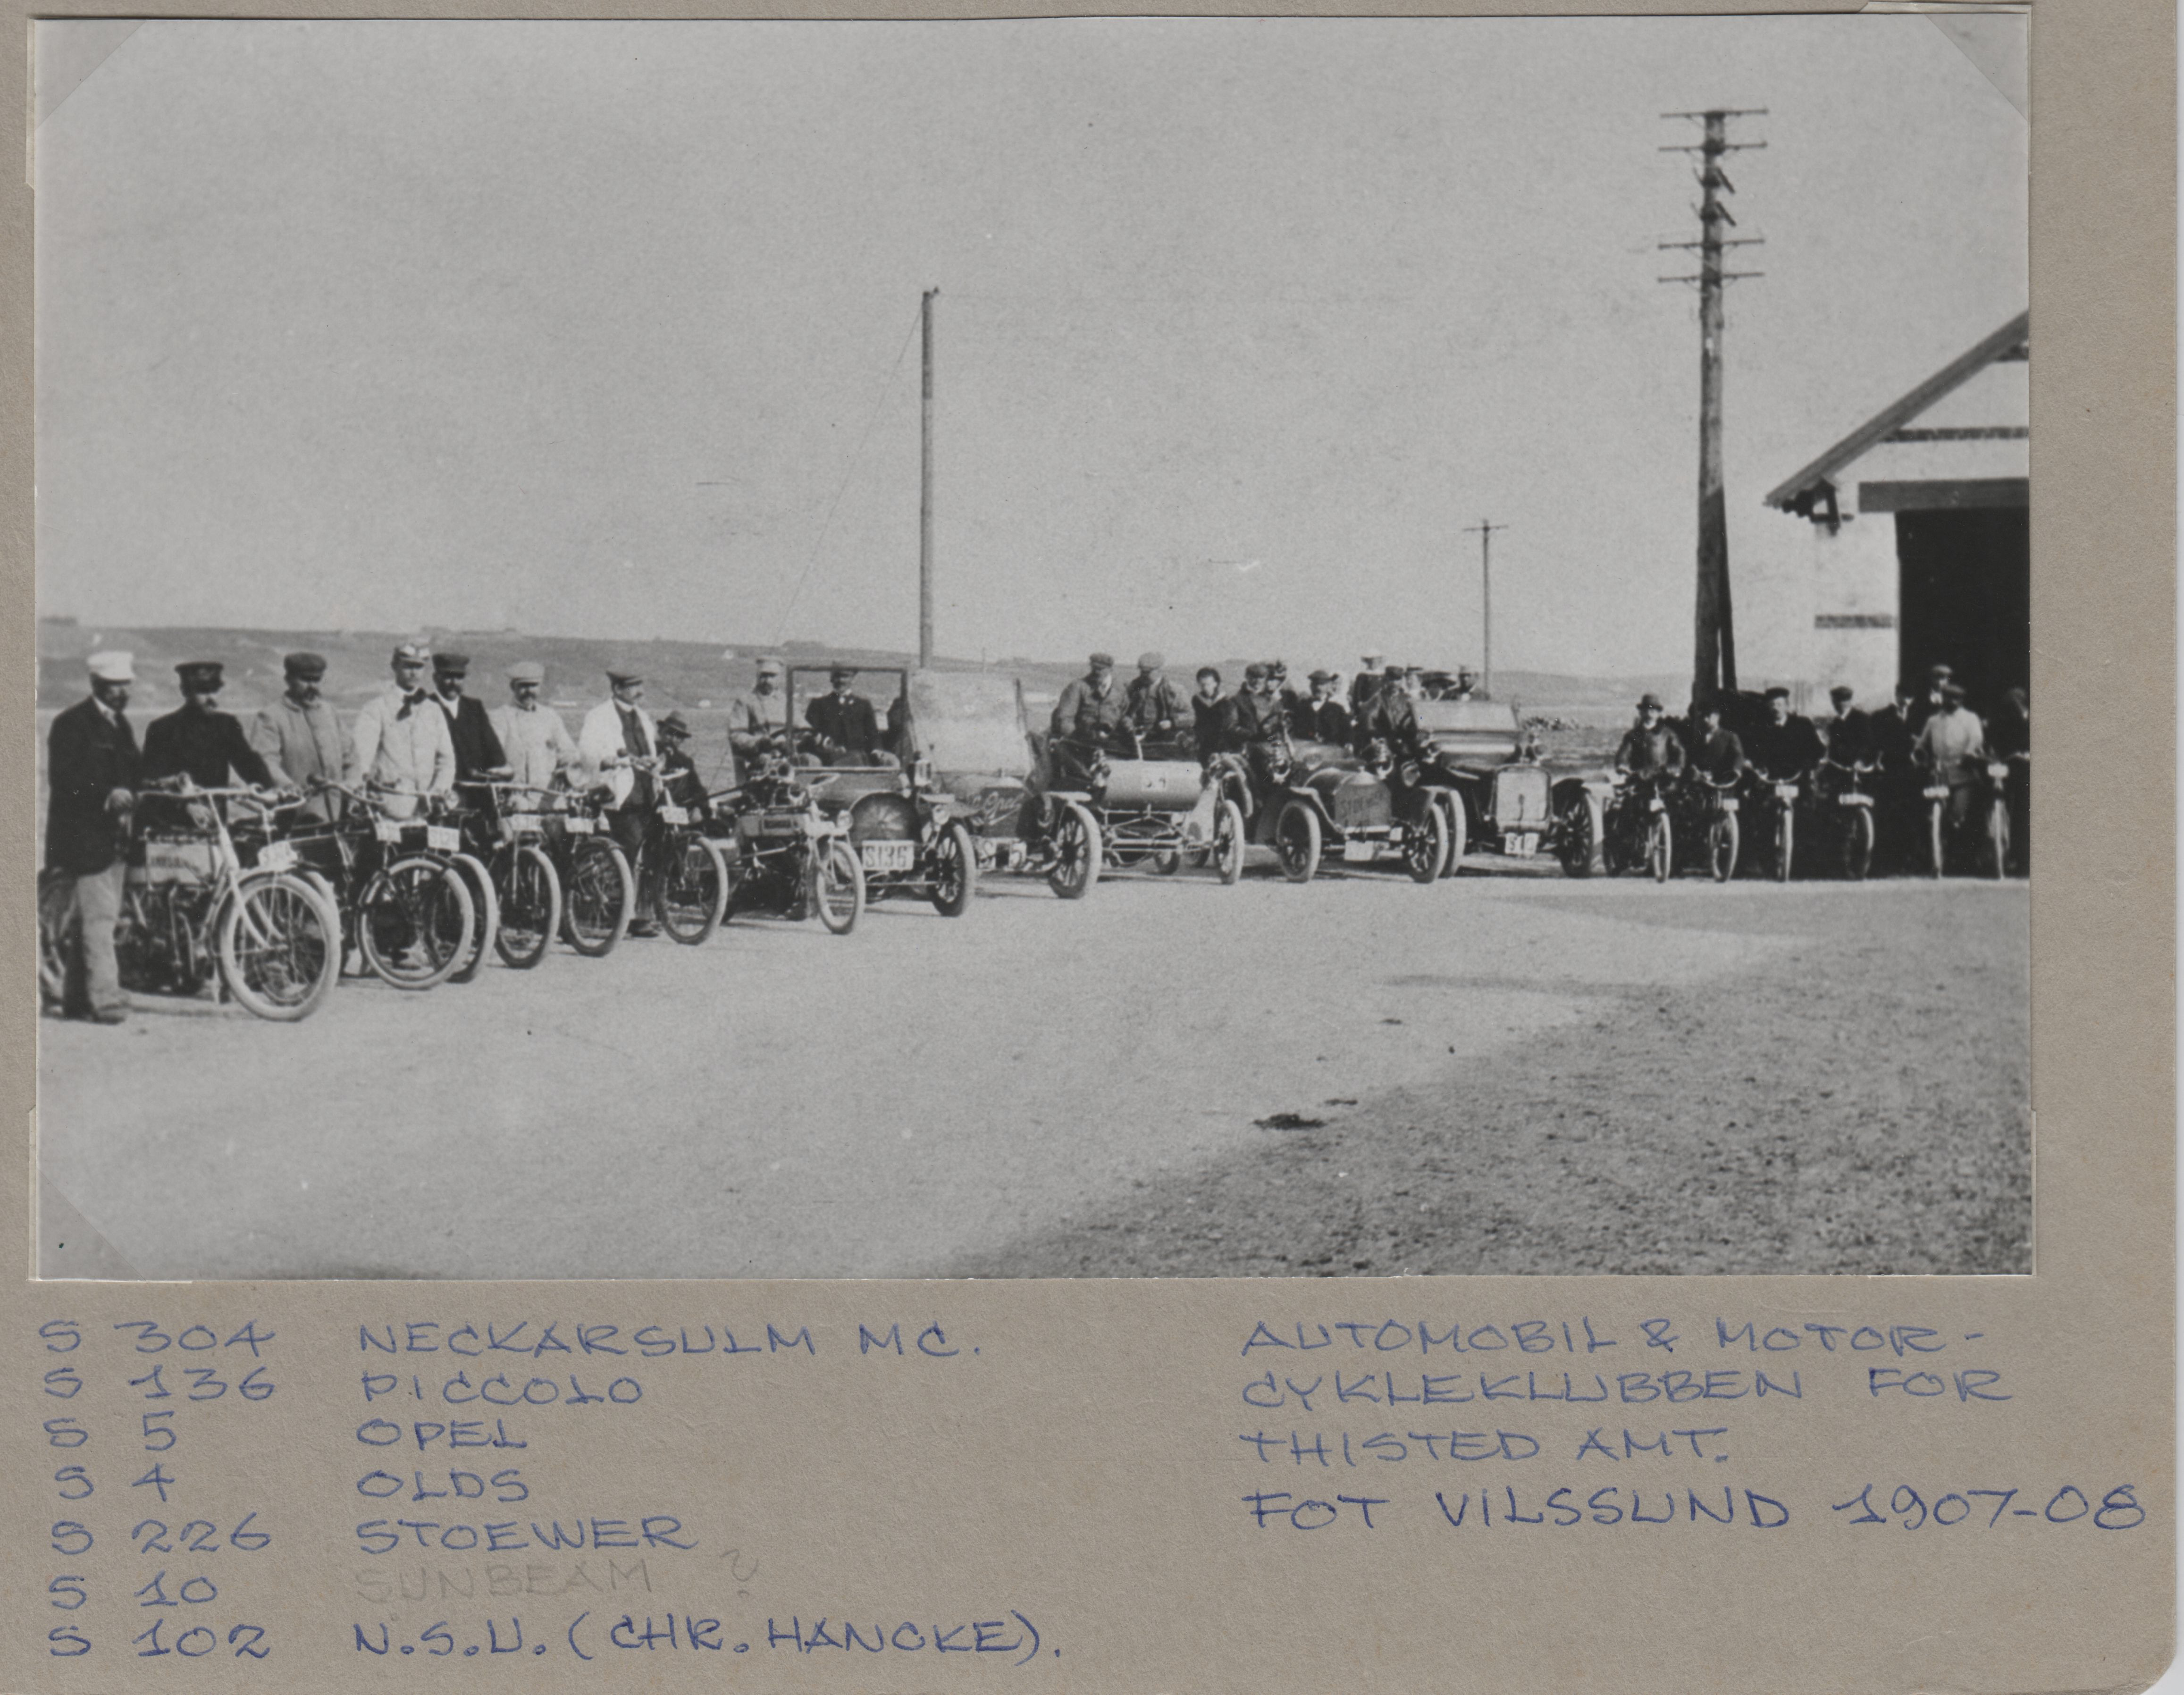 S136
Opel
S 304 NECKARSULM MC.
S 136 PICCOLO
S 5 OPEL
S 4 OLDS
S 226 STOEWER
S 10 SUNBEAM ?
S 102 N.S.U. (CHR. HANCKE).
AUTOMOBIL & MOTOR-
CYKLEKLUBBEN FOR
THISTED AMT.
FOT VILSSUND 1907-08